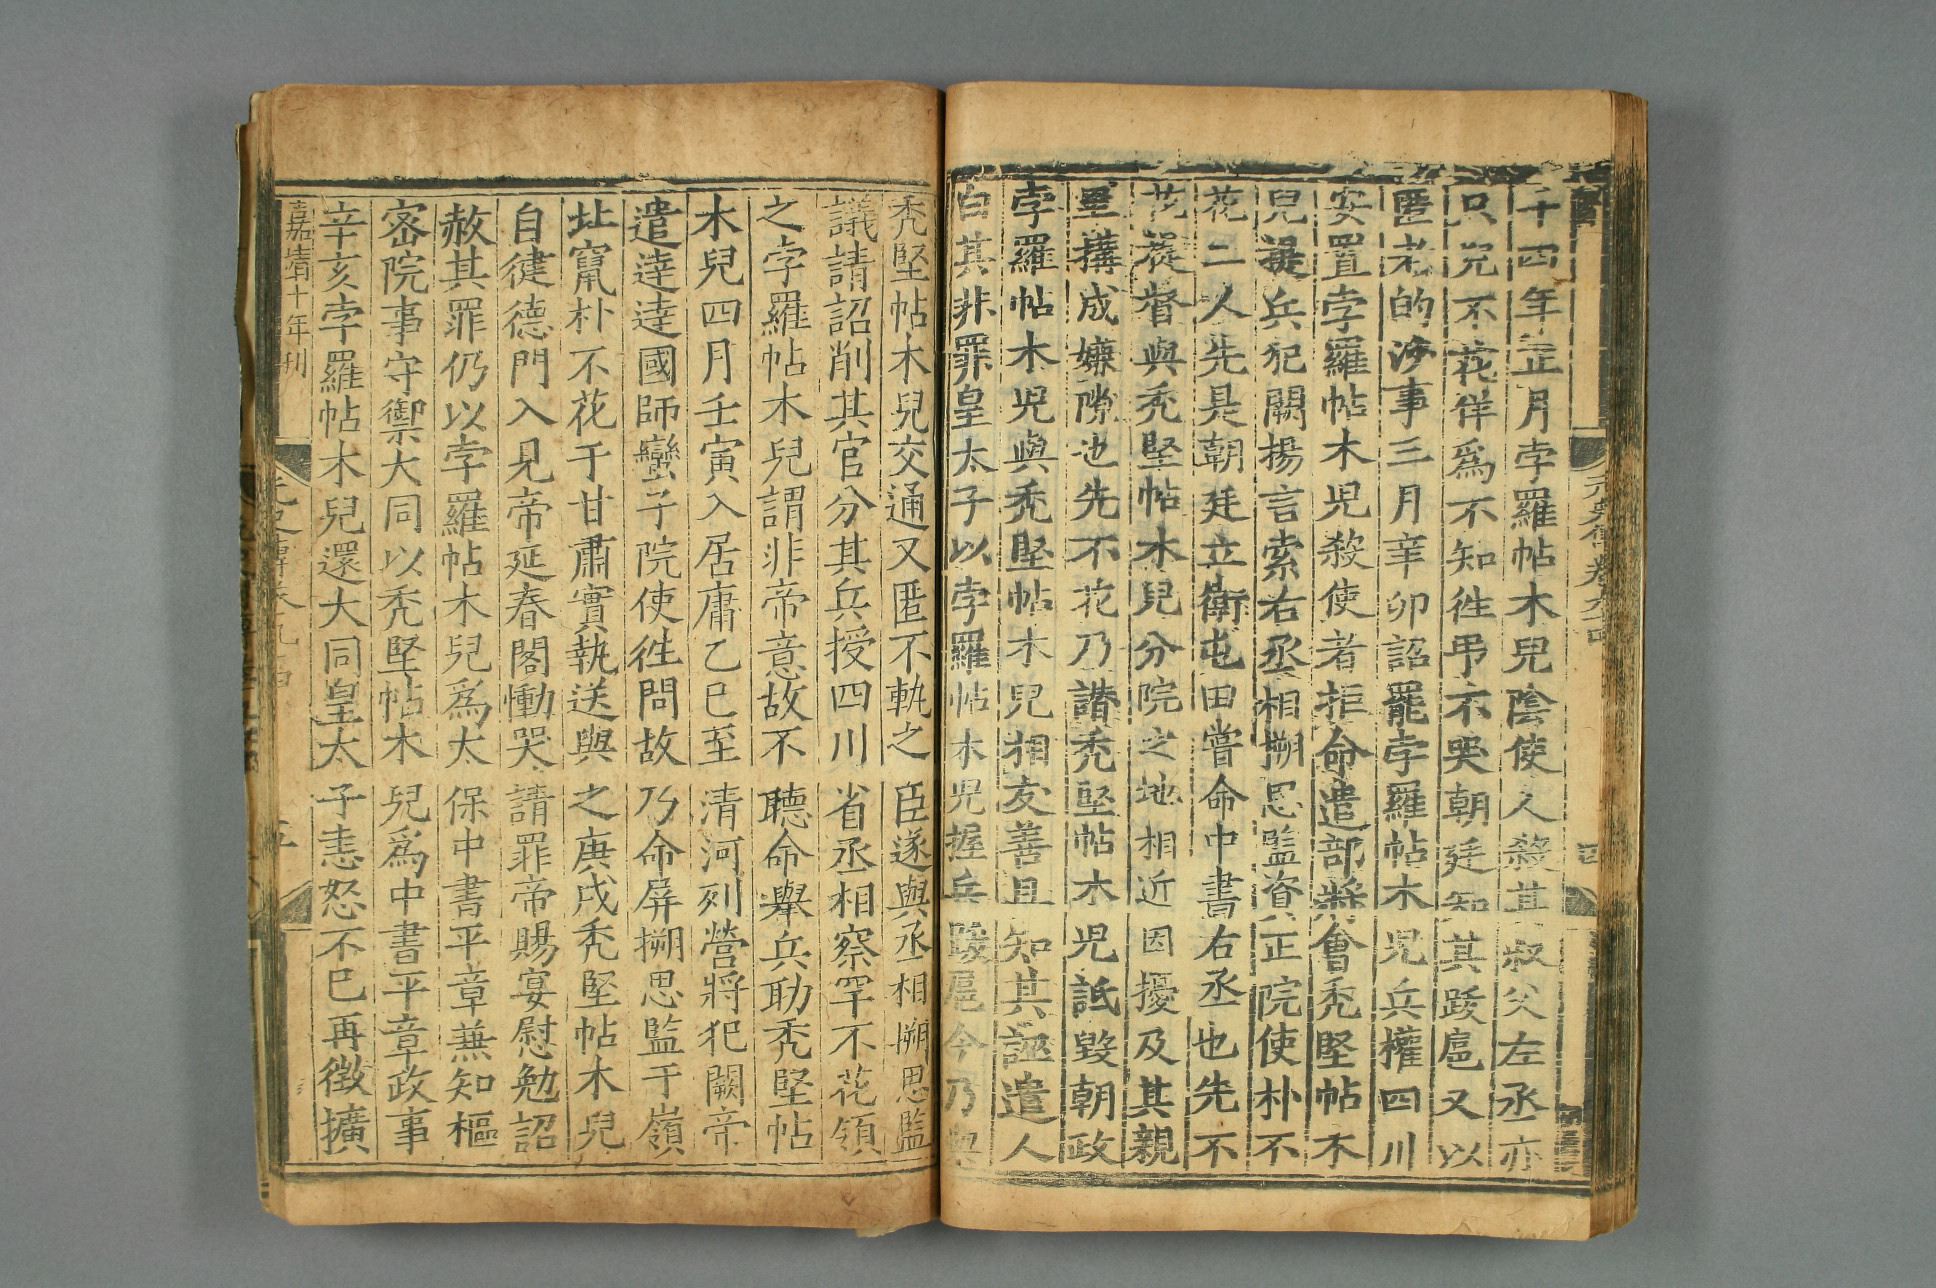 元史傳卷九十四
四
千四年正月孛羅帖木兒陰使人殺其叔父左丞亦
只兒不花佯爲不知徃弔不哭朝廷知其跋扈又以
匿老的沙事三月辛卯詔罷孛羅帖木兒兵權四川
安置孛羅帖木兒殺使者拒命遣部將會禿堅帖木
兒提兵犯闕揚言索右丞相搠思監資正院使朴不
花二人先是朝廷立衛屯田嘗命中書右丞也先不
花提督與禿堅帖木兒分院之地相近因擾及其親
里搆成嫌隙也先不花乃譖禿堅帖木兒詆毀朝政
孛羅帖木兒與禿堅帖木兒相友善且知其誣遣人
白其非罪皇太子以孛羅帖木兒握兵跋扈今乃與
禿堅帖木兒交通又匿不軌之臣遂與丞相搠思監
議請詔削其官分其兵授四川省丞相察罕不花領
之孛羅帖木兒謂非帝意故不聽命舉兵助禿堅帖
木兒四月壬寅入居庸乙巳至清河列營將犯闕帝
遣達達國師蠻子院使徃問故乃命屏搠思監于嶺
北竄朴不花于甘肅實執送與之庚戌禿堅帖木兒
自健德門入見帝延春閣慟哭請罪帝賜宴慰勉詔
赦其罪仍以孛羅帖木兒爲太保中書平章兼知樞
宻院事守禦大同以禿堅帖木兒爲中書平章政事
辛亥孛羅帖木兒還大同皇太子恚怒不已再徵擴
嘉靖十年刊
元史傳卷九十四
五